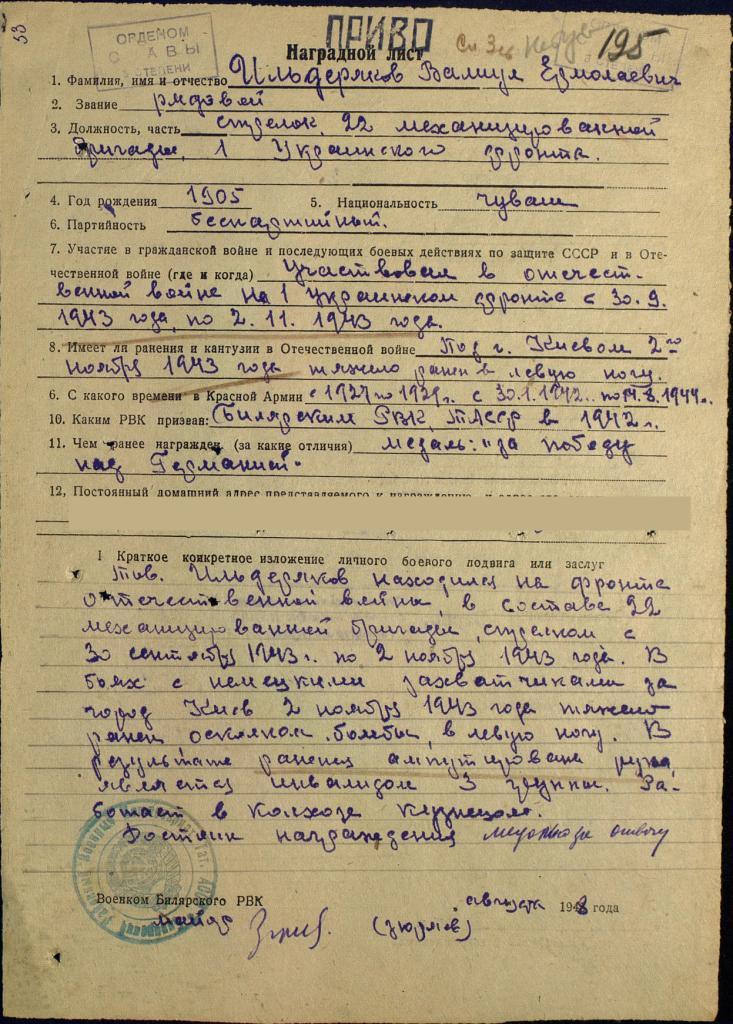 53
ОРДЕНОМ
С АВЫ
СТЕПЕНИ
ПРИВО
195
Наградной лист
1. Фамилия, имя и отчество Ильдеряков Ермолаевич
2. Звание рядовой
3. Должность, часть стрелок, 22 механизированной
бригады, 1 Украинского фронта.
4. Год рождения 1905 5. Национальность чуваш
6. Партийность беспартийный.
7. Участие в гражданской войне и последующих боевых действиях по защите СССР и в Оте-
чественной войне (где и когда) Участвовал в отечест-
венной войне на 1 Украинском фронте с 30.9.
1943 года, по 2.11.1943 года.
8. Имеет ли ранения и кантузии в Отечественной войне Под г. Киевом 2го
ноября 1943 года тяжело ранен в левую ногу.
6. С какого времени в Красной Армии с 1927 по 1929г. с 30.1.1942. по 14.8.1944г.
10. Каким РВК призван: Билярским РВК, ТАССР в 1942 г.
11. Чем ранее награжден (за какие отличия) медаль: "за победу
над Германией"
12, Постоянный домашний адрес представляемого к награждению
I Краткое конкретное изложение личного боевого подвига или заслуг
Тов. Ильдеряков находился на фронте
отечественной войны, в составе 22
механизированной бригады, стрелком с
30 сентября 1943г. по 2 ноября 1943 года. В
боях с немецкими захватчиками за
город Киев 2 ноября 1943 года тяжело
ранен осколком бомбы, в левую ногу. В
результате ранения ампутирована
является инвалидом 3 группы. Ра-
ботает в колхозе кузнецом.
Достоин награждения медалью за отвагу
Военком Билярского РВК августа 194 года
майор